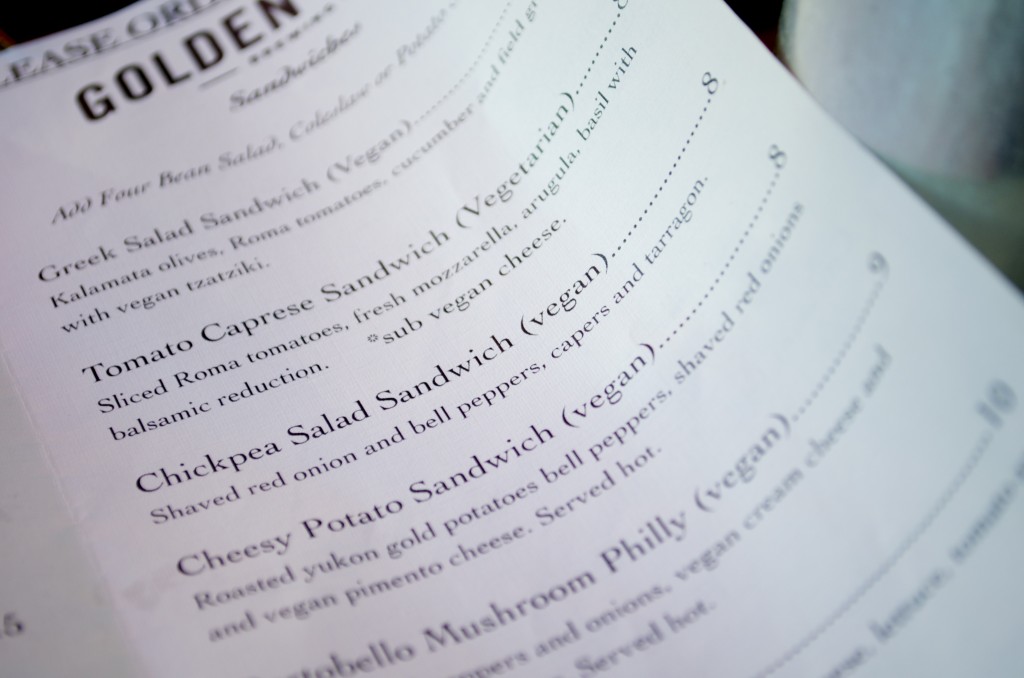 EASE ORD
GOLDEN
Sandwiches
Add Four Bean Salad, Coleslaw or Potato
Greek Salad Sandwich (Vegan)
Kalamata olives, Roma tomatoes, cucumber and field
with vegan tzatziki.
Tomato Caprese Sandwich (Vegetarian)
Sliced Roma tomatoes, fresh mozzarella, arugula, basil with
balsamic reduction. *sub vegan cheese.
Chickpea Salad Sandwich (vegan) 8
Shaved red onion and bell peppers, capers and tarragon.
Cheesy Potato Sandwich (vegan) 8
Roasted yukon gold potatoes bell peppers, shaved red onions
and vegan pimento cheese. Served hot.
tobello Mushroom Philly (vegan) 9
ppers and onions, vegan cream cheese and
Served hot.
10
lettuce, tomato
5